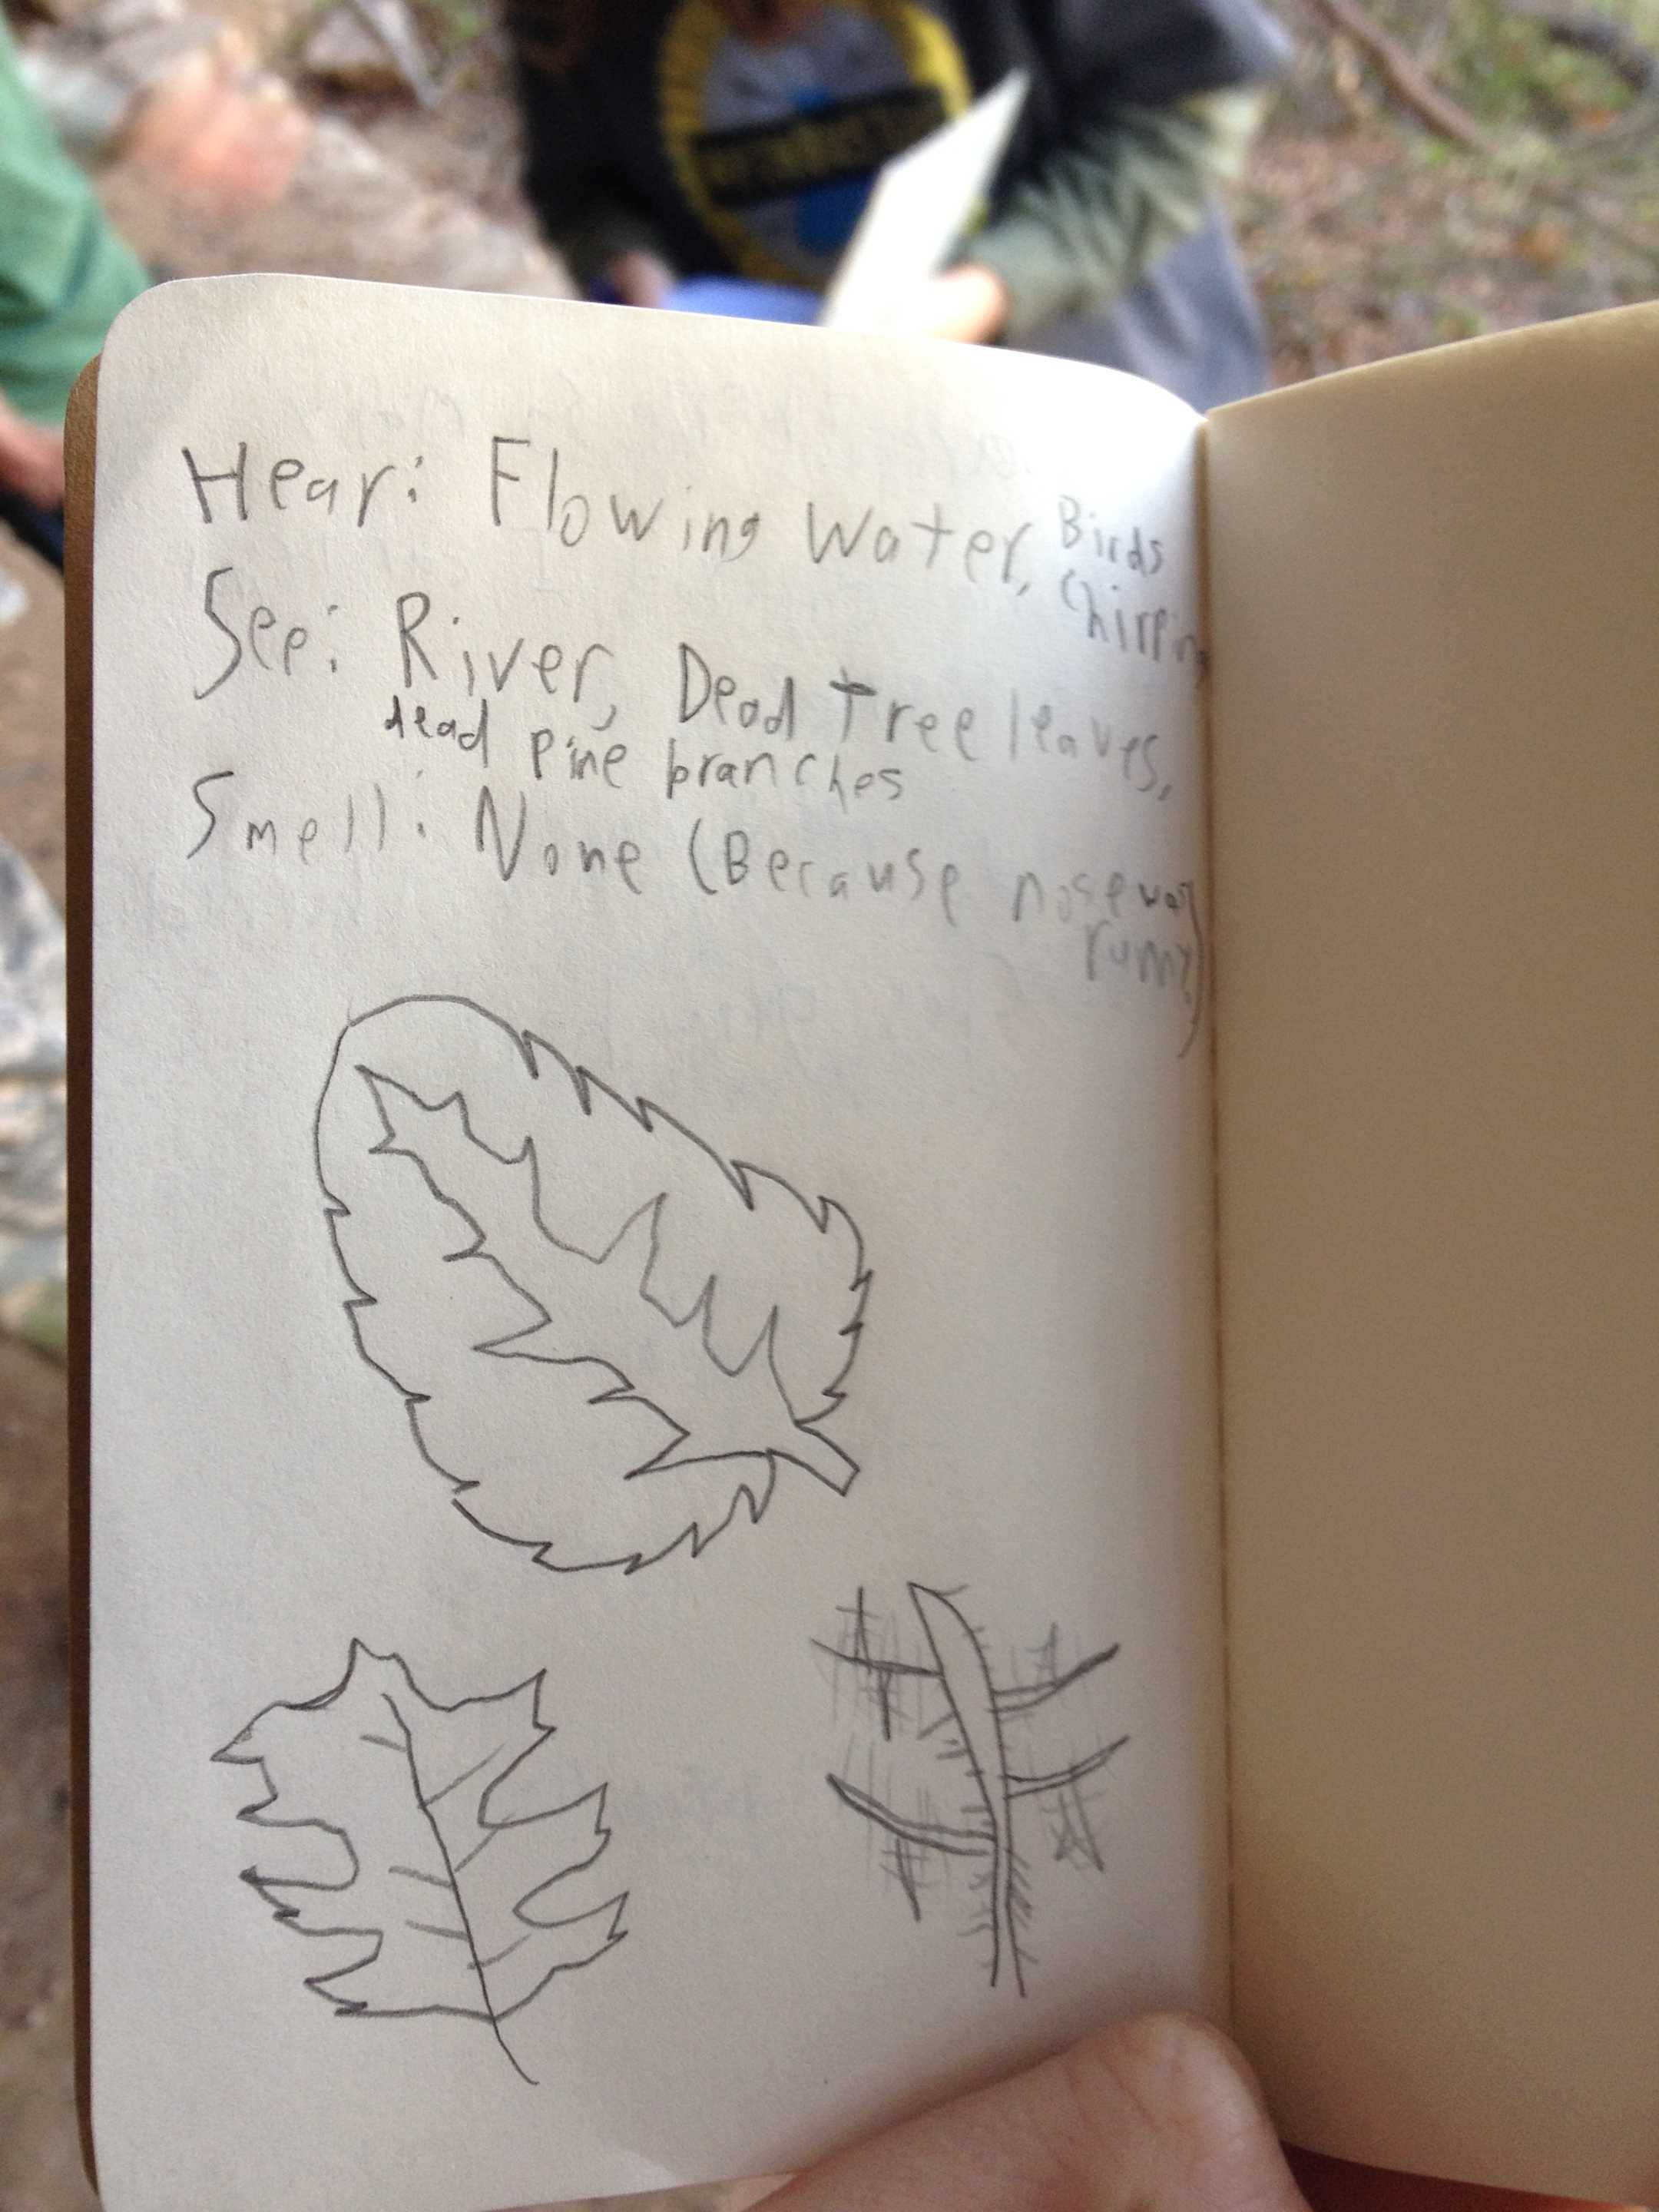 Hear: Flowing water, Birds
Chirping
See: River, Dead tree leaves,
dead pine branches
Smell: None (Because nose was
runny)